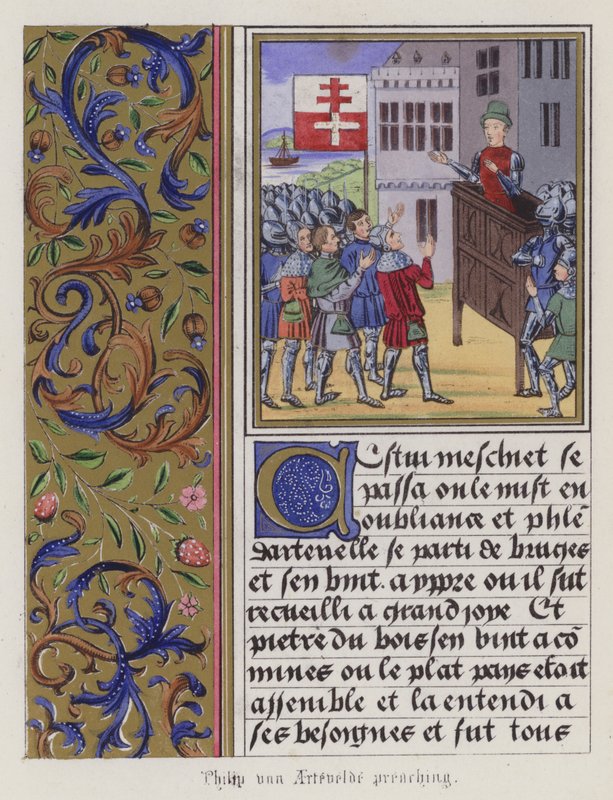 Cestui meschiet se
passa on le mist en
oubliance et phle
dartevelle se parti de bruges
et sen vint. a yppre ou il fut
recueilli a grand joye Et
pietre du bois sen vint a cō
mines ou le plat pays estoit
assemble et la entendi a
ses besoignes et fut tous
Philip van Artevelde preaching.